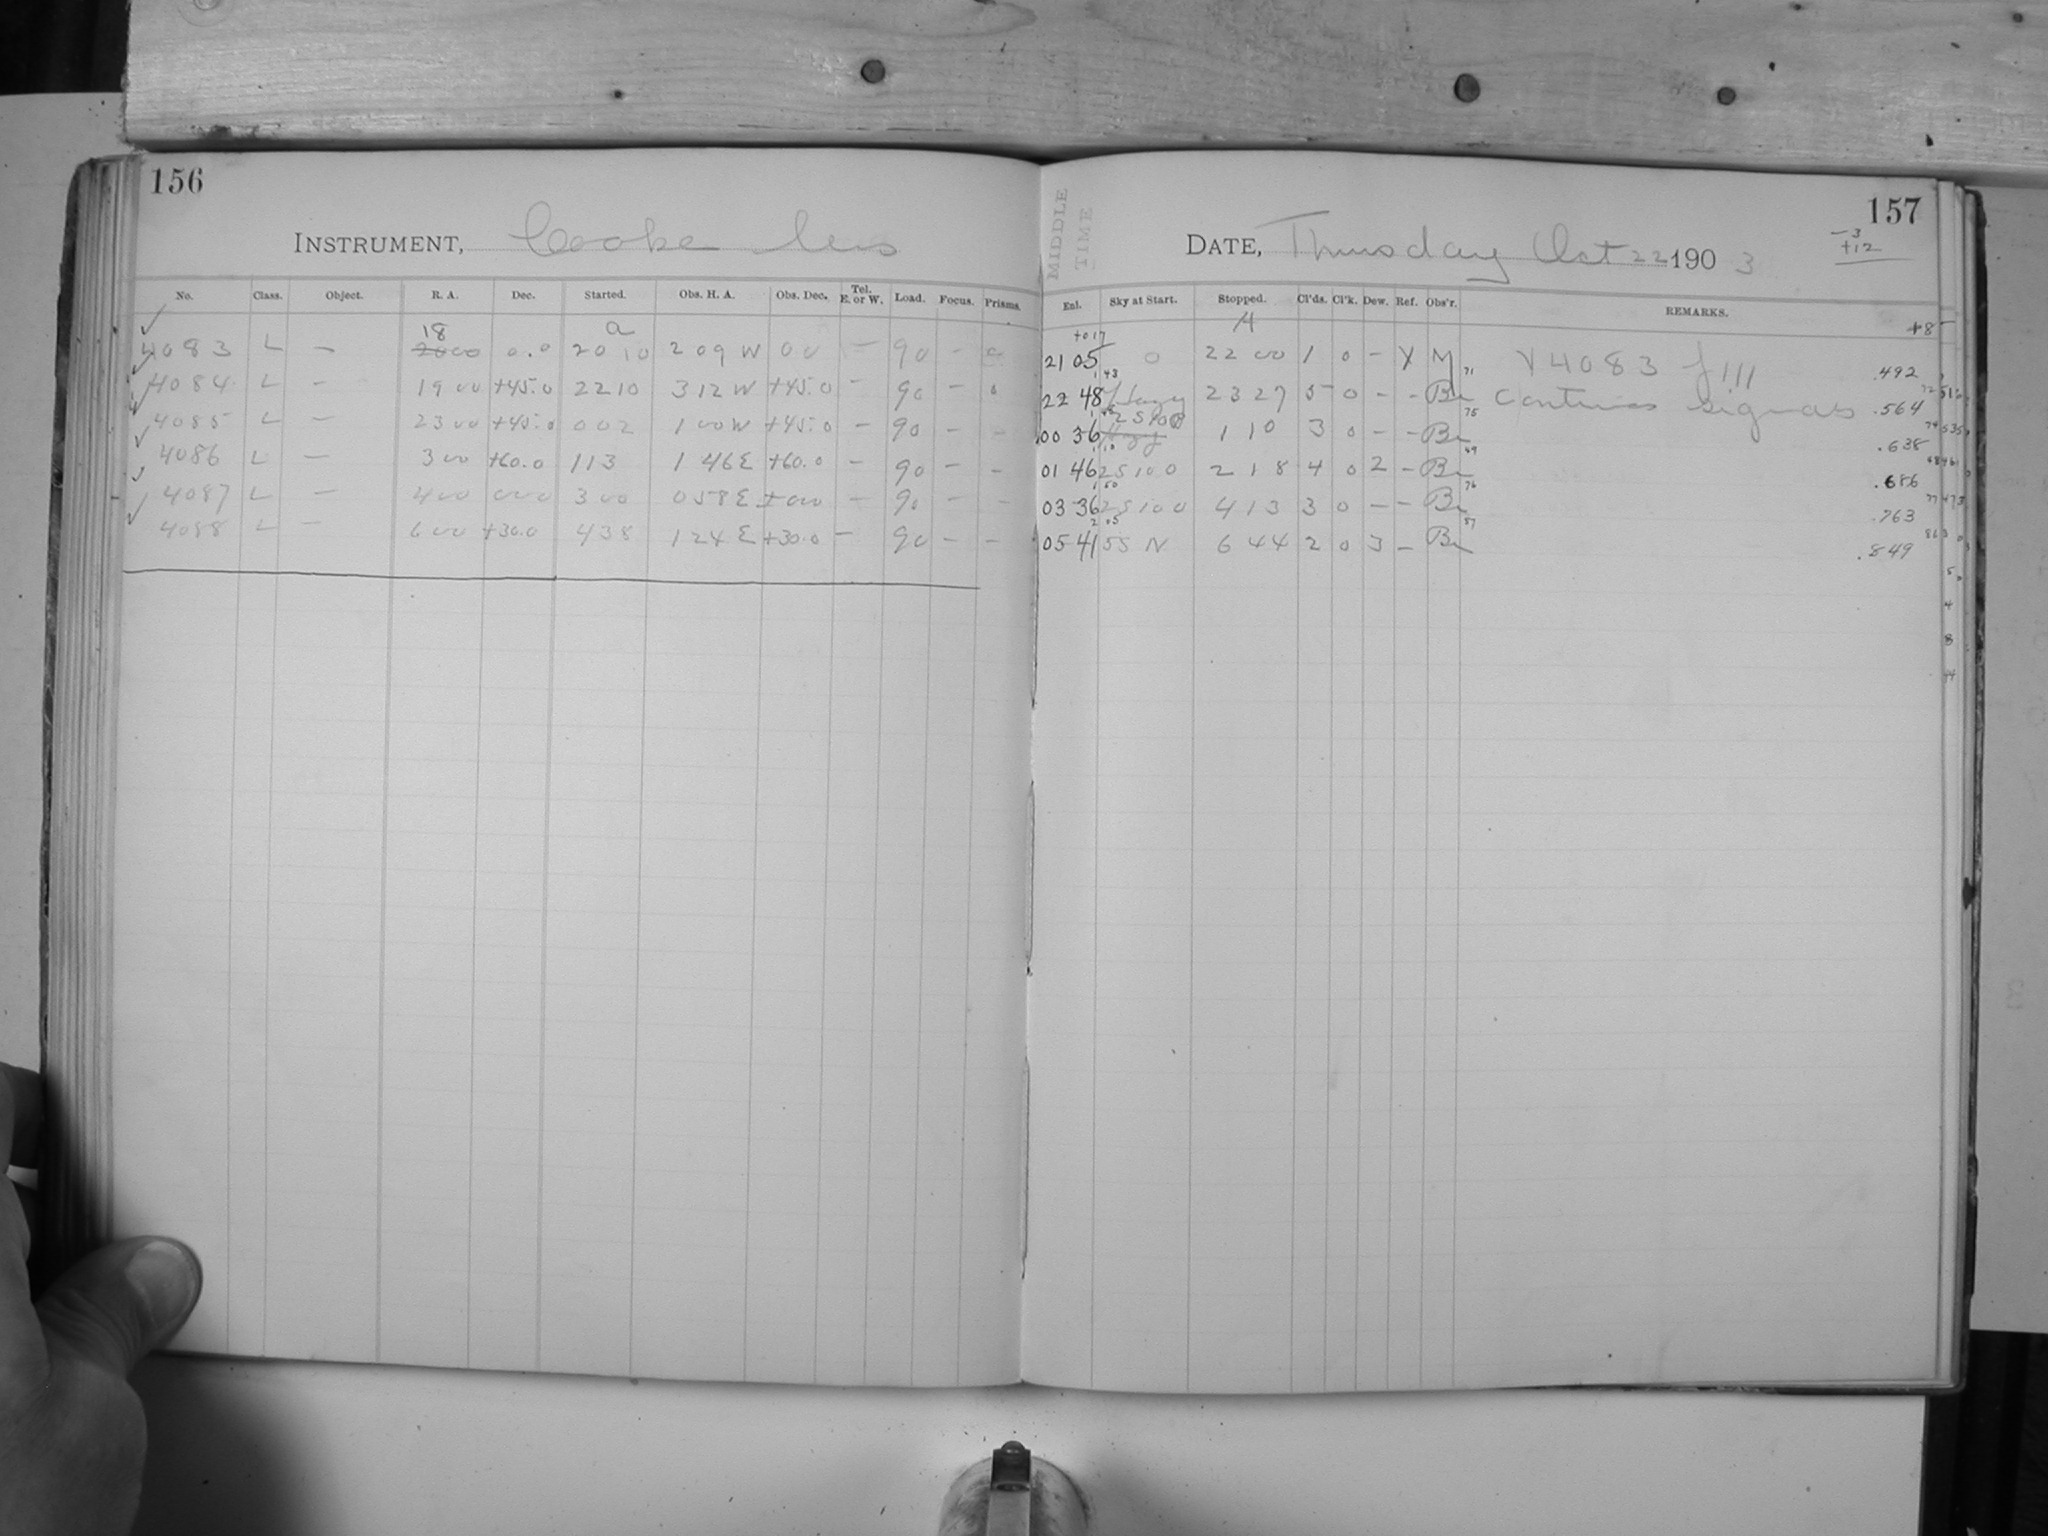 156
INSTRUMENT, Cooke lens
No. Class. Object. R. A. Dec. Started. Obs. H. A. Obs. Dec. Tel. E. or W. Load. Focus. Prisms.
18 a
4083 L — 2000 0.0 20 10 2 09 W 00 — 90 — 0
4084 L — 19 00 +45.0 22 10 3 12 W +45.0 — 90 — 0
4085 L — 23 00 +45.0 0 02 1 00 W +45.0 — 90 — —
4086 L — 3 00 +60.0 1 13 1 46 E +60.0 — 90 — —
4087 L — 4 00 000 3 00 0 58 E +000 — 90 — —
4088 L — 6 00 +30.0 4 38 1 24 E +30.0 — 90 — —
157
MIDDLE TIME
DATE, Thursday Oct 22 1903
-3
+12
Enl. Sky at Start. Stopped. Cl'ds. Cl'k. Dew. Ref. Obs'r. REMARKS.
+017 M +8
21 05 0 22 00 1 0 — Y M Y 4083 f!!! .492
22 48 Hazy 23 27 5 0 — — Be Continuous signals .564
00 36 2S100 1 10 3 0 — — Be .638
01 46 2S100 2 18 4 0 2 — Be .686
03 36 2S100 4 13 3 0 — — Be .763
05 41 5S N 6 44 2 0 3 — Be .849